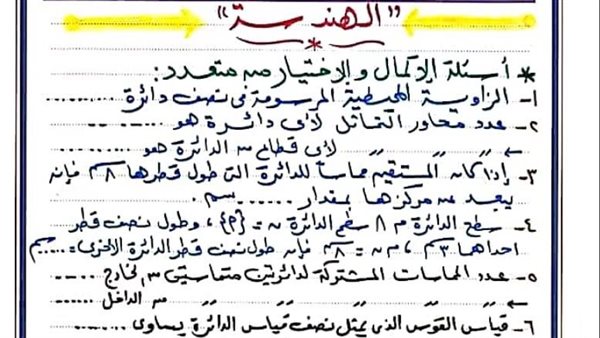 "الهندسة"
* أسئلة الإكمال والإختيار من متعدد:
١- الزاوية المحيطية المرسومة فى نصف دائرة ..........
٢- عدد محاور التماثل لأى دائرة هو ..........
← ,, ,, ,, لأى قطاع من الدائرة هو ..........
٣- إذا كان المستقيم مماساً للدائرة التى طول قطرها ٨ سم فإنه
يبعد عن مركزها بمقدار ........ سم .
٤- سطح الدائرة م ∩ سطح الدائرة ن = {م} ، وطول نصف قطر
احداهما ٣ سم ، م ن = ٨ سم فإن طول نصف قطر الدائرة الأخرى = .... سم
٥- عدد المماسات المشتركة لدائرتين متماستين من الخارج ......
← ,, ,, ,, ,, ,, من الداخل ......
٦- قياس القوس الذى يمثل نصف قياس الدائرة يساوى ........